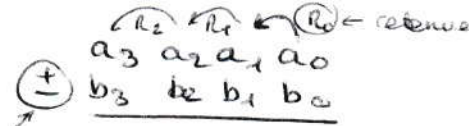 R₂ R₁ R₀ ← retenue
a₃ a₂ a₁ a₀
± b₃ b₂ b₁ b₀